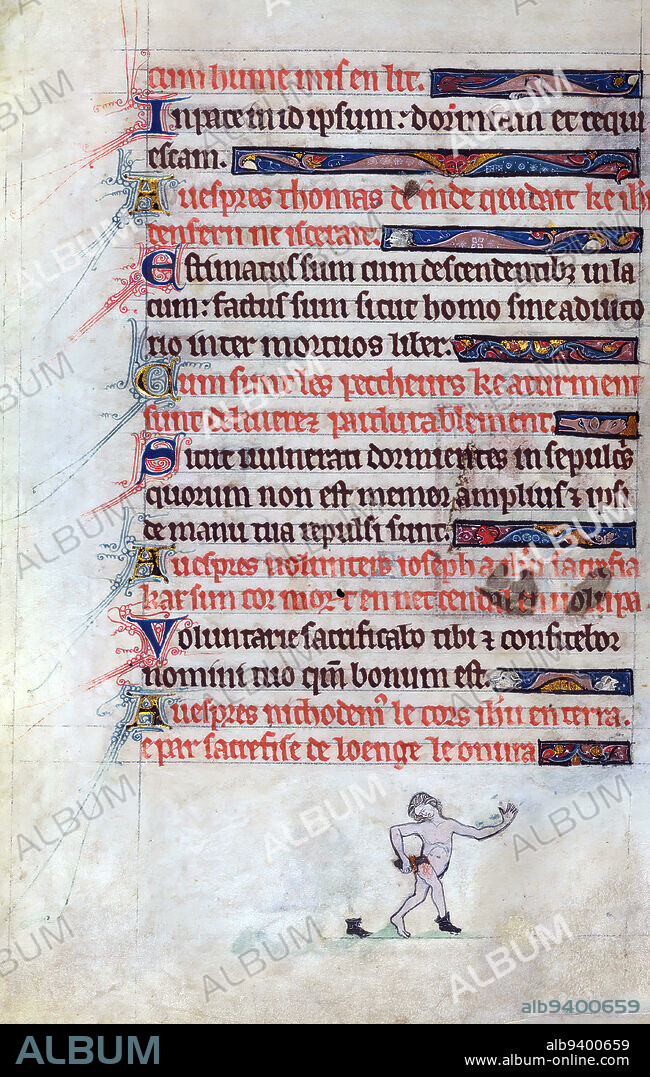 cum hume mis en lit.
In pace in id ipsum: dormiam et requi
escam.
A uespres thomas de inde quidāt ke ih̄u
denfern ne isterait.
Estimatus sum cum descendentibz in la
cum: factus sum sicut homo sine adiuto
rio inter mortuos liber.
Cum simples peccheurs ke a turment
sunt deliuerez pardurablement.
Sicut uulnerati dormientes in sepulcs
quorum non est memor amplius & ipsi
de manu tua repulsi sunt.
A uespres ioseph a sacrefia
kar sun cor mort en
Voluntarie sacrificabo tibi & confitebor
nomini tuo qm̄ bonum est.
A uespres nichodem' le cors ih̄u en terra.
e par sacrefise de loenge le onura
ALBUM
alb9400659
ALBUM
alb9400659
www.album-online.com